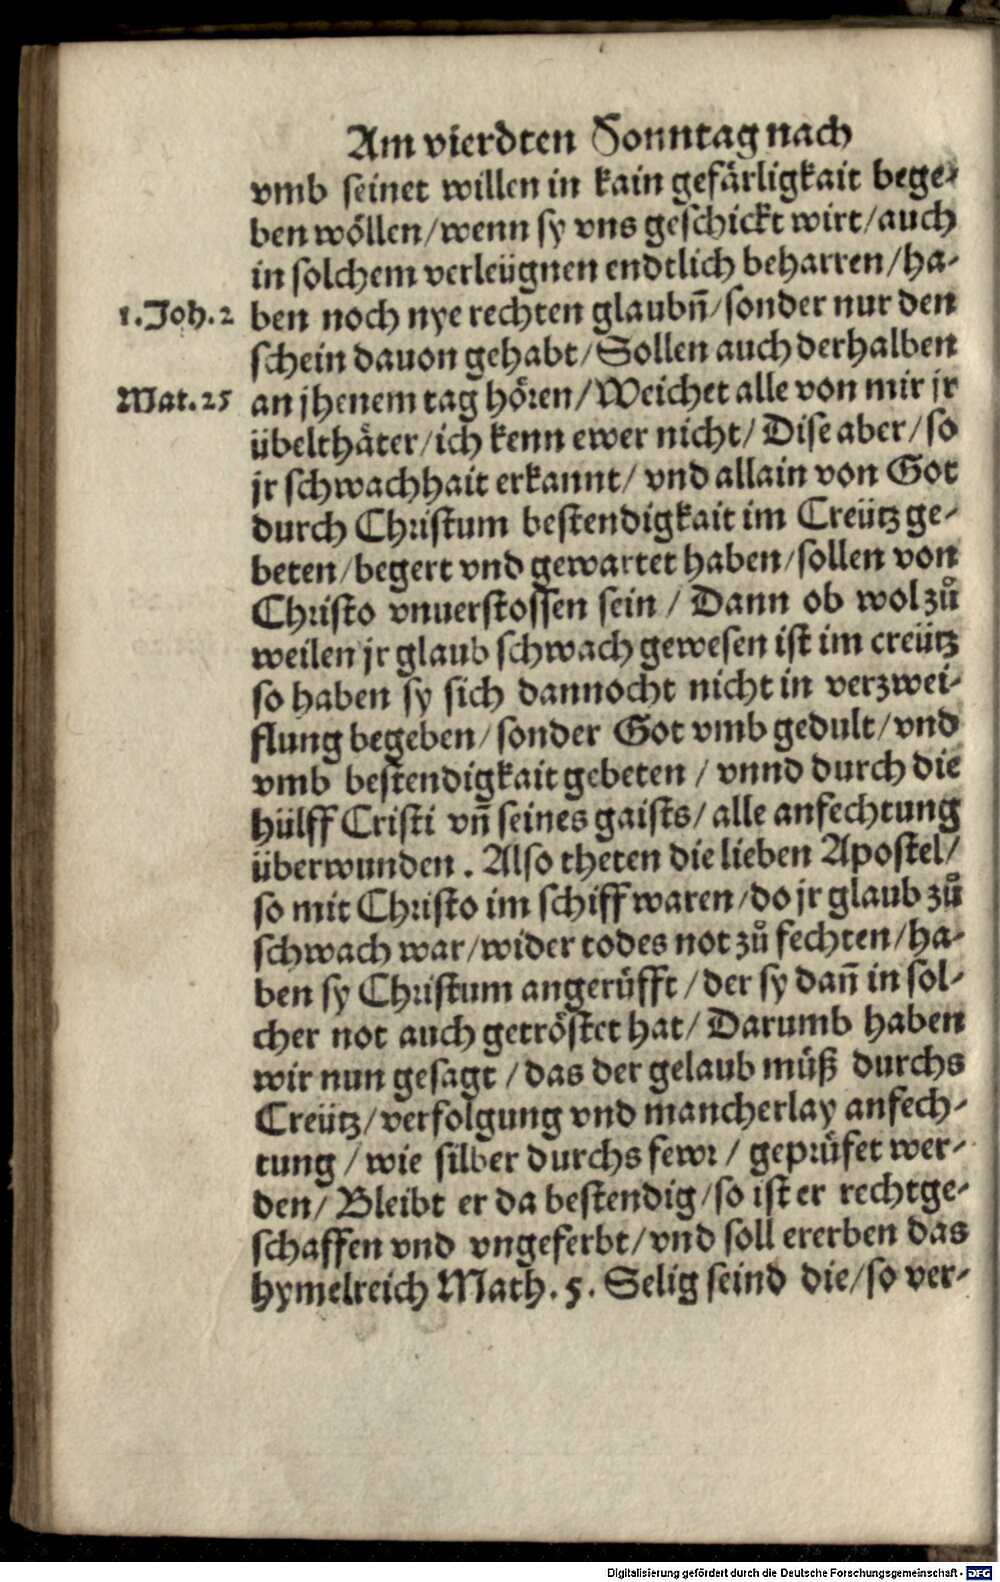 Am vierdten Sonntag nach
vmb seinet willen in kain gefärligkait bege-
ben wöllen/wenn sy vns geschickt wirt/auch
in solchem verleügnen endtlich beharren/ha-
1.Joh.2 ben noch nye rechten glaubñ/sonder nur den
schein dauon gehabt/Sollen auch derhalben
Mat.25 an jhenem tag hören/Weichet alle von mir jr
übelthäter/ich kenn ewer nicht/Dise aber/so
jr schwachhait erkannt/vnd allain von Got
durch Christum bestendigkait im Creütz ge-
beten/begert vnd gewartet haben/sollen von
Christo vnuerstossen sein/Dann ob wol zů
weilen jr glaub schwach gewesen ist im creütz
so haben sy sich dannocht nicht in verzwei-
flung begeben/sonder Got vmb gedult/vnd
vmb bestendigkait gebeten/vnnd durch die
hülff Cristi vñ seines gaists/alle anfechtung
überwunden. Also theten die lieben Apostel/
so mit Christo im schiff waren/do jr glaub zů
schwach war/wider todes not zů fechten/ha-
ben sy Christum angerüfft/der sy dañ in sol-
cher not auch getröstet hat/Darumb haben
wir nun gesagt/das der gelaub müß durchs
Creütz/verfolgung vnd mancherlay anfech-
tung/wie silber durchs fewr/geprüfet wer-
den/Bleibt er da bestendig/so ist er rechtge-
schaffen vnd vngeferbt/vnd soll ererben das
hymelreich Math.5. Selig seind die/so ver-
Digitalisierung gefördert durch die Deutsche Forschungsgemeinschaft - DFG